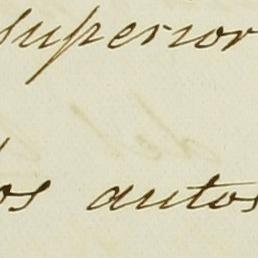 superior
los autos